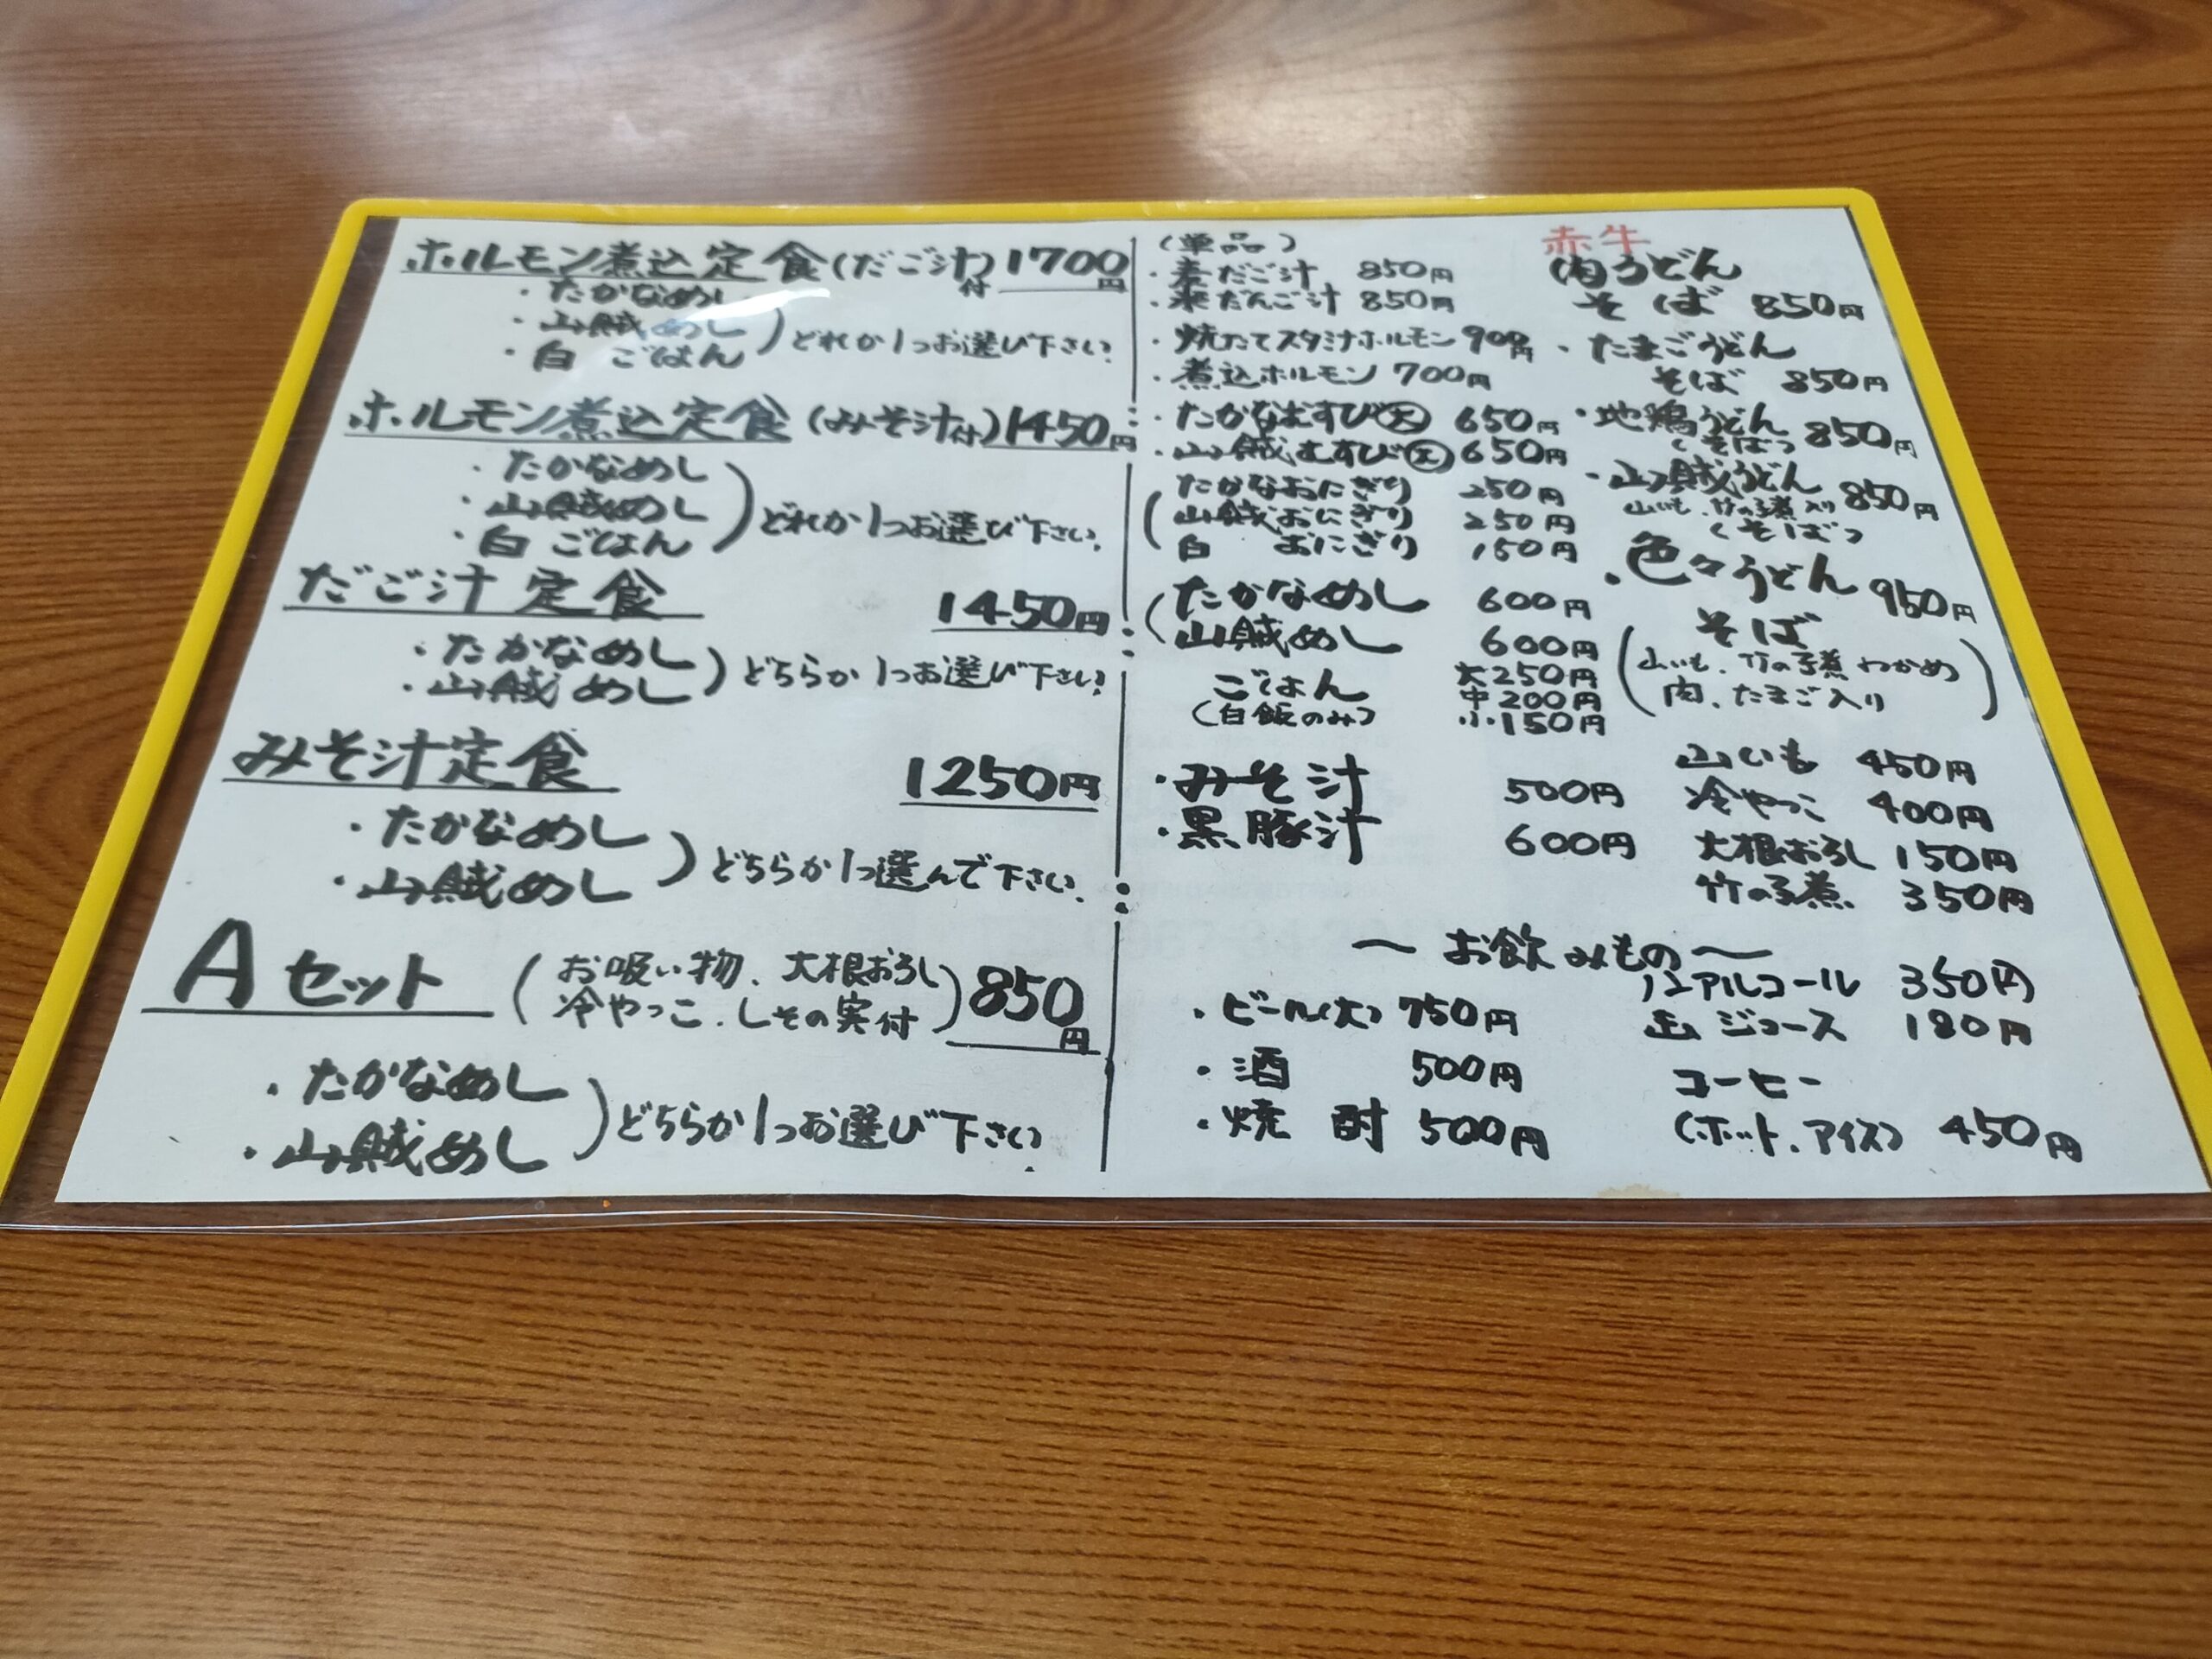 ホルモン煮込定食(だご汁付)1700円
・たかなめし
・山賊めし
・白ごはん
どれか1つお選び下さい。
ホルモン煮込定食(みそ汁付)1450円
・たかなめし
・山賊めし
・白ごはん
どれか1つお選び下さい。
だご汁定食 1450円
・たかなめし
・山賊めし
どちらか1つお選び下さい。
みそ汁定食 1250円
・たかなめし
・山賊めし
どちらか1つ選んで下さい。
Aセット(お吸い物、大根おろし
冷やっこ、しその実付)850円
・たかなめし
・山賊めし
どちらか1つお選び下さい
(単品)
・麦だご汁 850円
・米だんご汁 850円
・焼たてスタミナホルモン 900円
・煮込ホルモン 700円
・たかなむすび(大) 650円
・山賊むすび(大) 650円
たかなおにぎり 250円
山賊おにぎり 250円
白 おにぎり 150円
たかなめし 600円
山賊めし 600円
ごはん 大250円
(白飯のみ) 中200円
小150円
・みそ汁 500円
・黒豚汁 600円
赤牛
(肉うどん
そば 850円
・たまごうどん
そば 850円
・地鶏うどん 850円
(そば)
・山賊うどん 850円
山いも、竹の子煮入り
(そば)
・色々うどん 950円
そば
(山いも、竹の子煮 わかめ
肉、たまご入り)
山いも 450円
冷やっこ 400円
大根おろし 150円
竹の子煮 350円
〜お飲みもの〜
・ビール(大) 750円
・酒 500円
・焼酎 500円
ノンアルコール 350円
缶ジュース 180円
コーヒー
(ホット、アイス) 450円